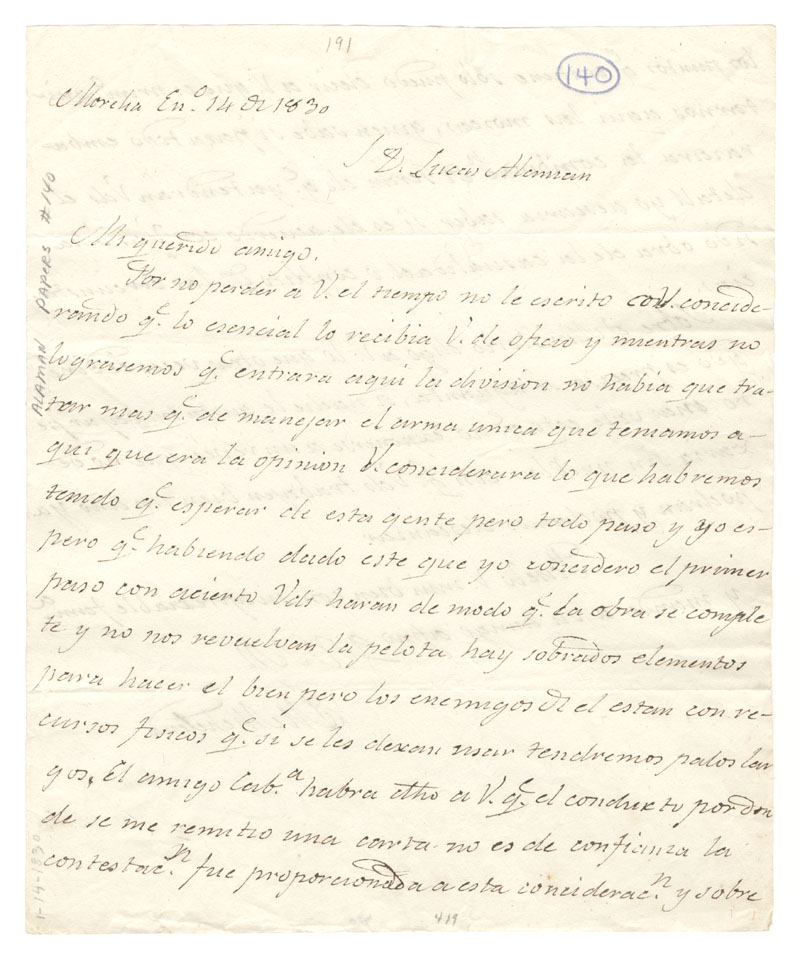 191
140
Morelia En.º 14 de 1830
S D. Lucas Alaman
Mi querido amigo.
Por no perder a V. el tiempo no le escrito con V. concide-
rando q.e lo esencial lo recibia V. de oficio y mientras no
lograsemos q.e entrara aqui la division no habia que tra-
tar mas q.e de manejar el arma unica que teniamos a-
qui que era la opinion V. conciderara lo que habremos
tenido q.e esperar de esta gente pero todo paso y yo es-
pero q.e habiendo dado este que yo concidero el primer
paso con acierto Vds haran de modo q.e la obra se comple
te y no nos revuelvan la pelota hay sobrados elementos
para hacer el bien pero los enemigos del el estan con re-
cursos fisicos q.e si se les dexan usar tendremos palos lar
gos, El amigo Cab.a habra dho a V. q.e el conducto por don
de se me remitio una carta no es de confianza la
contestac.n fue proporcionada a esta conciderac.n y sobre
ALAMAN PAPERS # 140
1-14-1830
419